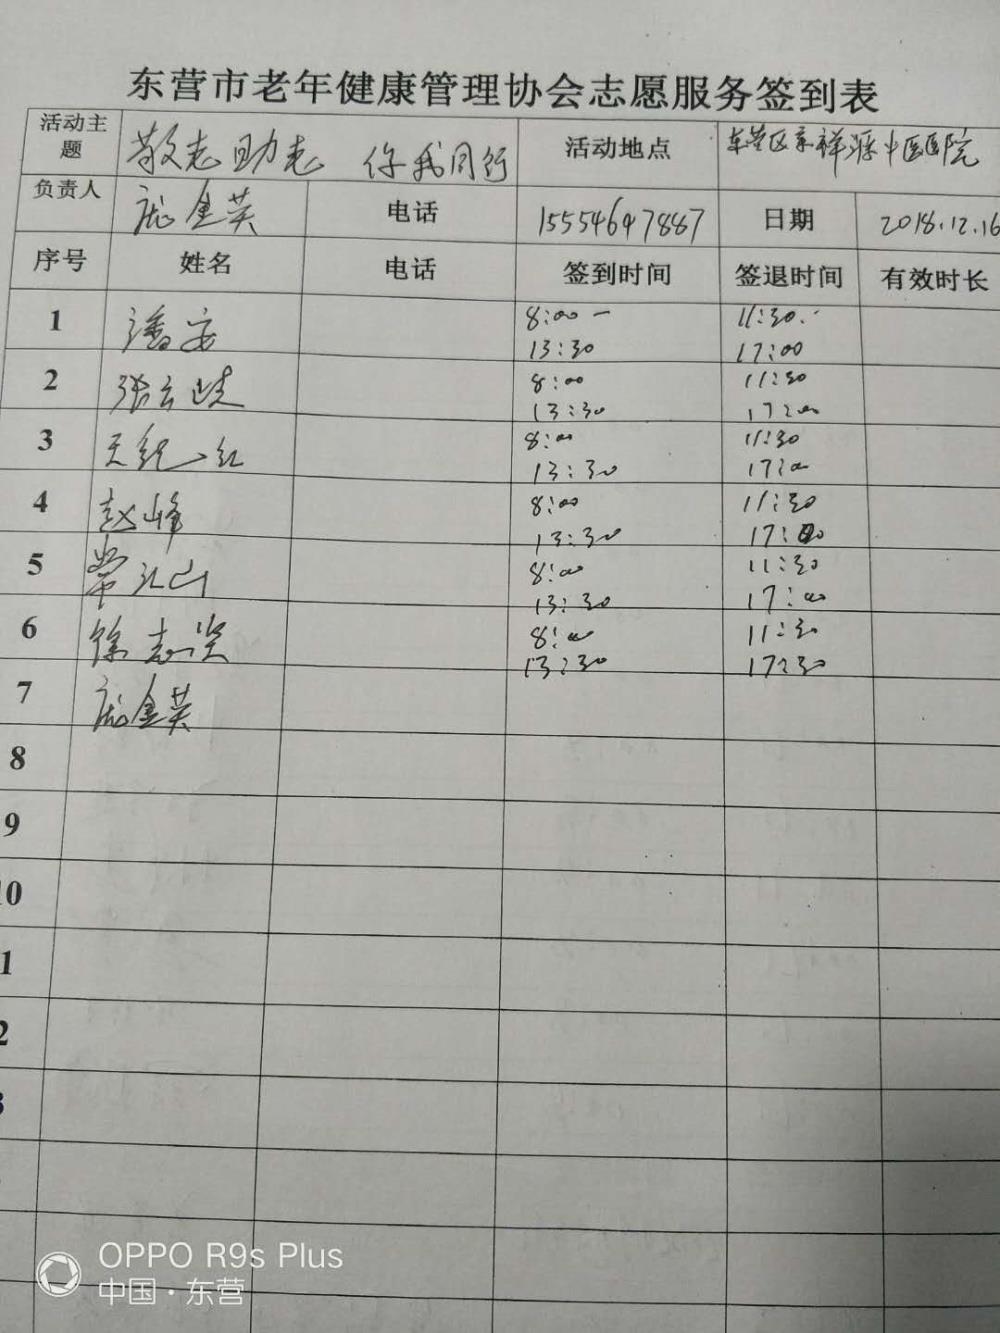 东营市老年健康管理协会志愿服务签到表
活动主题 敬老助老 你我同行 活动地点 东营区京祥源中医医院
负责人 庞金英 电话 15554647887 日期 2018.12.16
序号 姓名 电话 签到时间 签退时间 有效时长
1 潘安 8:00 - 11:30.
13:30 17:00
2 张云 8:00 11:30
13:30 17:00
3 红 8:00 11:30
13:30 17:00
4 赵峰 8:00 11:30
13:30 17:00
5 常江山 8:00 11:30
13:30 17:00
6 徐志 8:00 11:30
13:30 17:30
7 庞金英
8
9
10
1
2
3
OPPO R9s Plus
中国·东营